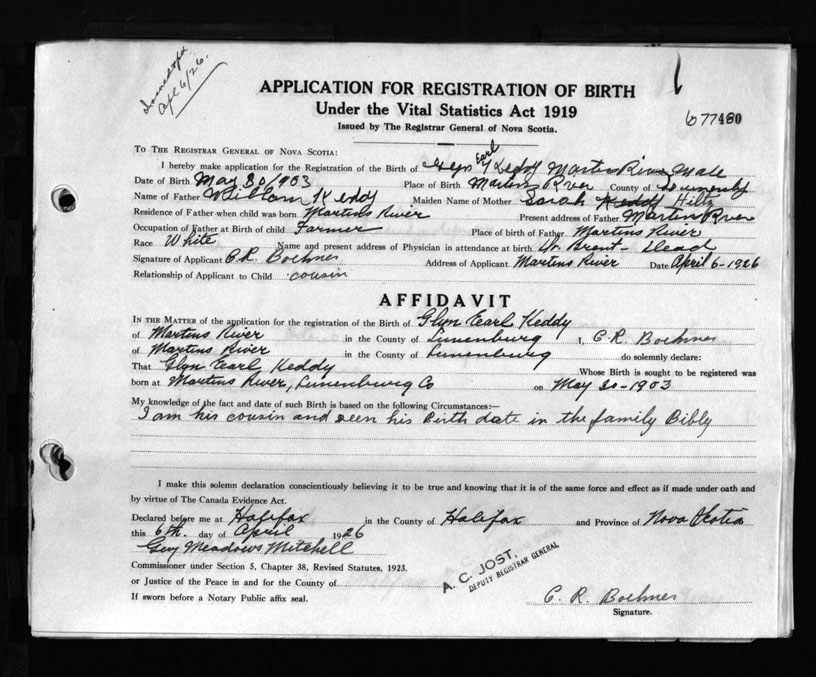 Issued
Apl 6/26.
APPLICATION FOR REGISTRATION OF BIRTH
Under the Vital Statistics Act 1919
Issued by The Registrar General of Nova Scotia.
677480
TO THE REGISTRAR GENERAL OF NOVA SCOTIA:
I hereby make application for the Registration of the Birth of Glyn Earl Keddy Martins River Male
Date of Birth May 30/1903 Place of Birth Martins River County of Lunenburg
Name of Father William Keddy Maiden Name of Mother Sarah Keddy Hiltz
Residence of Father when child was born Martins River Present address of Father Martins River
Occupation of Father at Birth of child Farmer Place of birth of Father Martins River
Race White Name and present address of Physician in attendance at birth Dr. Brent - Dead
Signature of Applicant C.R. Boehner Address of Applicant Martins River Date April 6-1926
Relationship of Applicant to Child cousin
AFFIDAVIT
IN THE MATTER of the application for the registration of the Birth of Glyn Earl Keddy
of Martins River in the County of Lunenburg I, C R. Boehner
of Martins River in the County of Lunenburg do solemnly declare:
That Glyn Earl Keddy Whose Birth is sought to be registered was
born at Martins River, Lunenburg Co on May 30-1903
My knowledge of the fact and date of such Birth is based on the following Circumstances:—
I am his cousin and seen his Birth date in the family Bibly
I make this solemn declaration conscientiously believing it to be true and knowing that it is of the same force and effect as if made under oath and
by virtue of The Canada Evidence Act.
Declared before me at Halifax in the County of Halifax and Province of Nova Scotia
this 6th. day of April 1926
Guy Meadows Mitchell
Commissioner under Section 5, Chapter 38, Revised Statutes, 1923.
or Justice of the Peace in and for the County of
If sworn before a Notary Public affix seal.
A. C. JOST.
DEPUTY REGISTRAR GENERAL
C. R. Boehner
Signature.